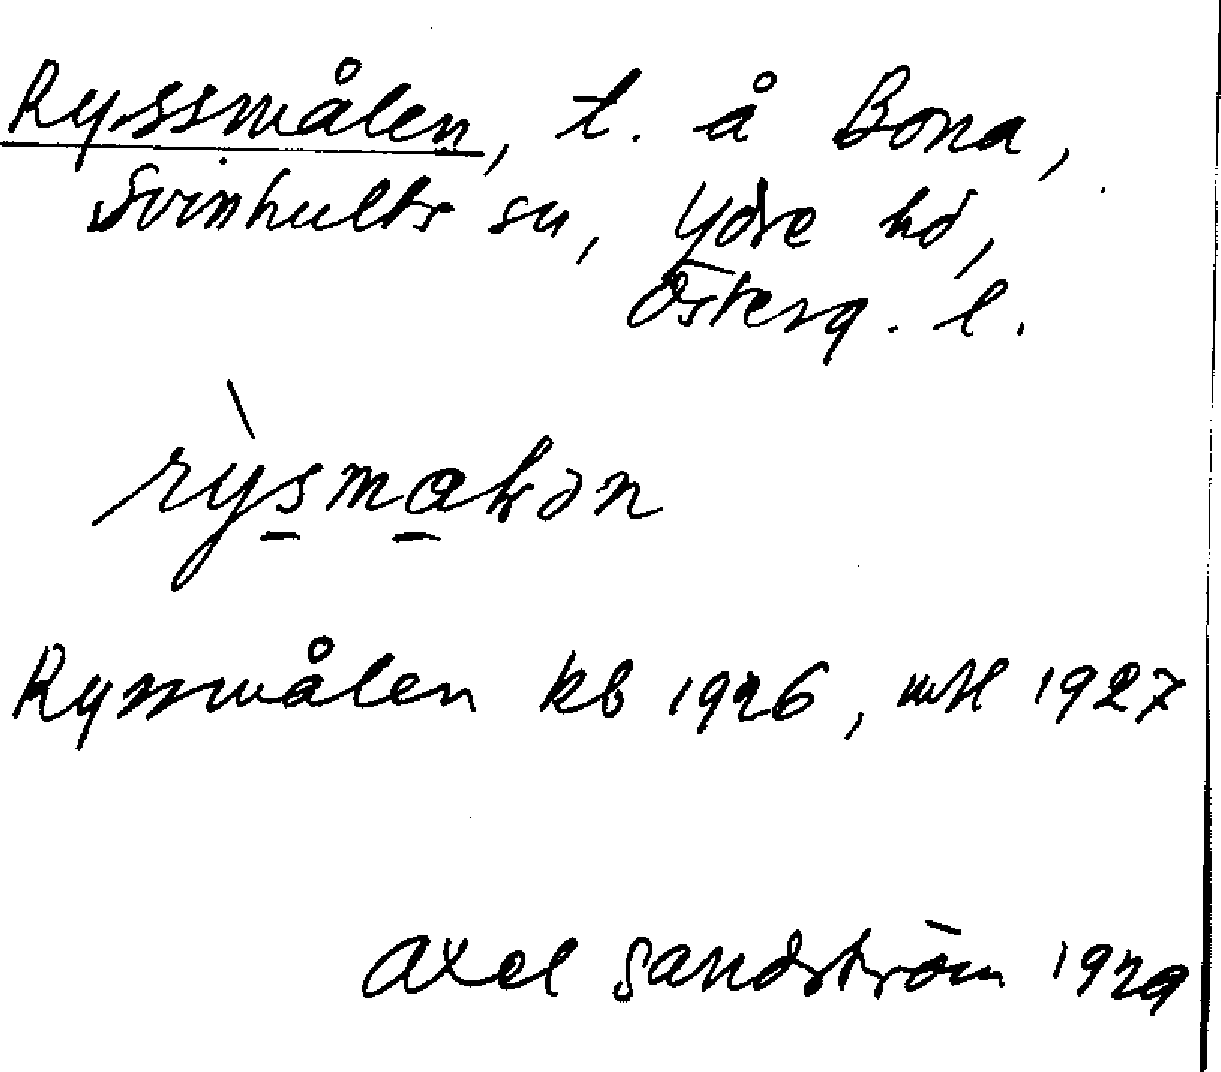 Ryssmålen, t. å Bona,
Svinhults sn, Ydre hd,
Österg. l.
rỳsmaɫən
Ryssmålen kb 1926, mtl 1927
Axel Sandström 1929